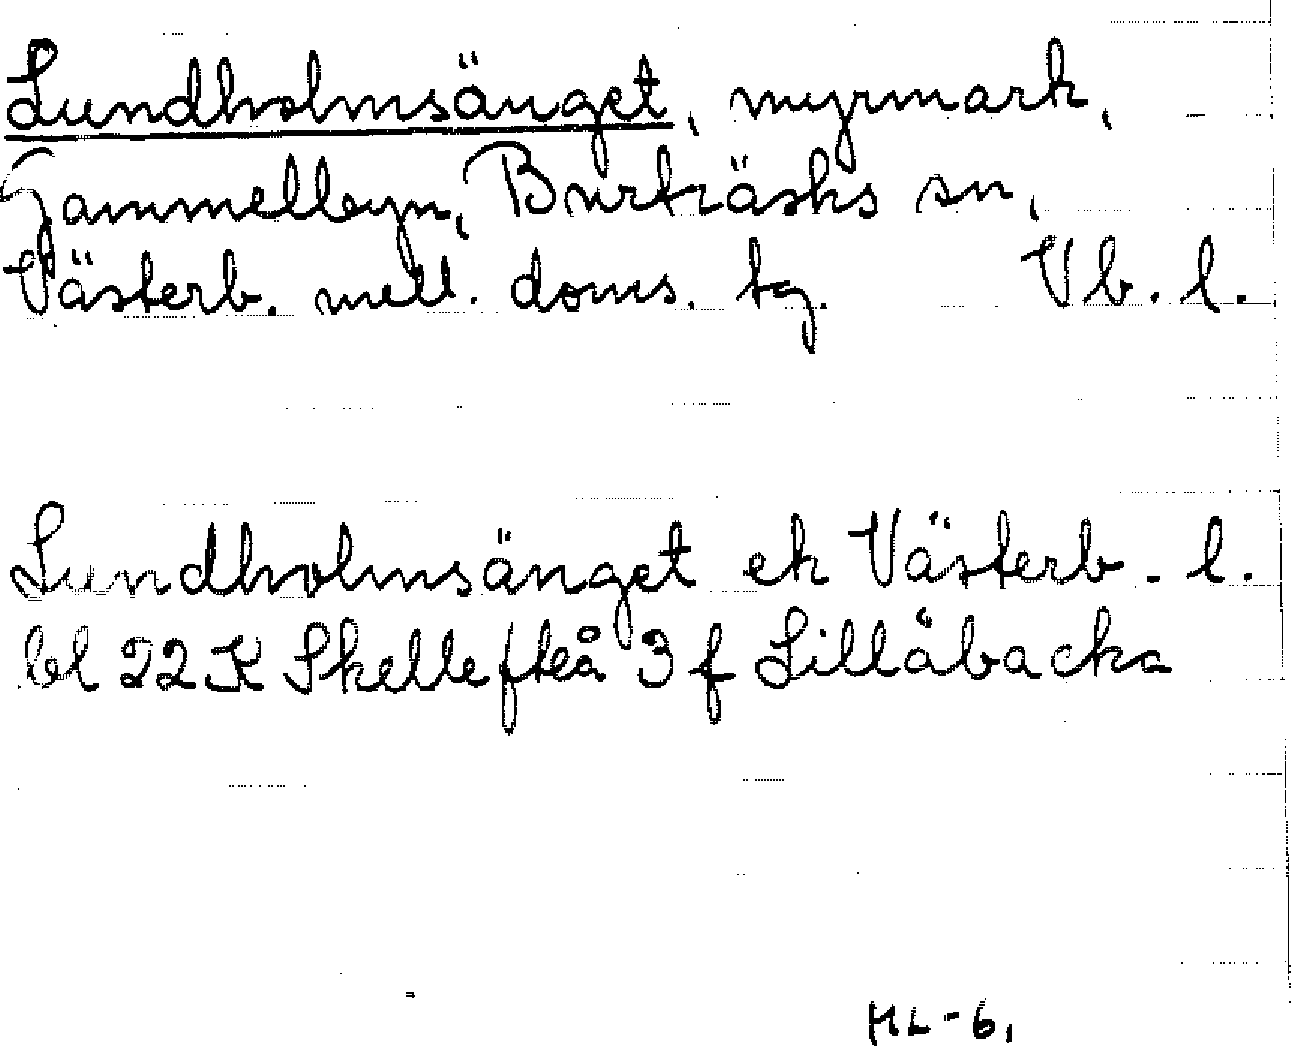 Lundholmsänget, myrmark,
Gammelbyn, Burträsks sn,
Västerb. mell. doms. tg. Vb. l.
Lundholmsänget ek Västerb. l.
bl 22 K Skellefteå 3 f Lillåbacka
HL-61